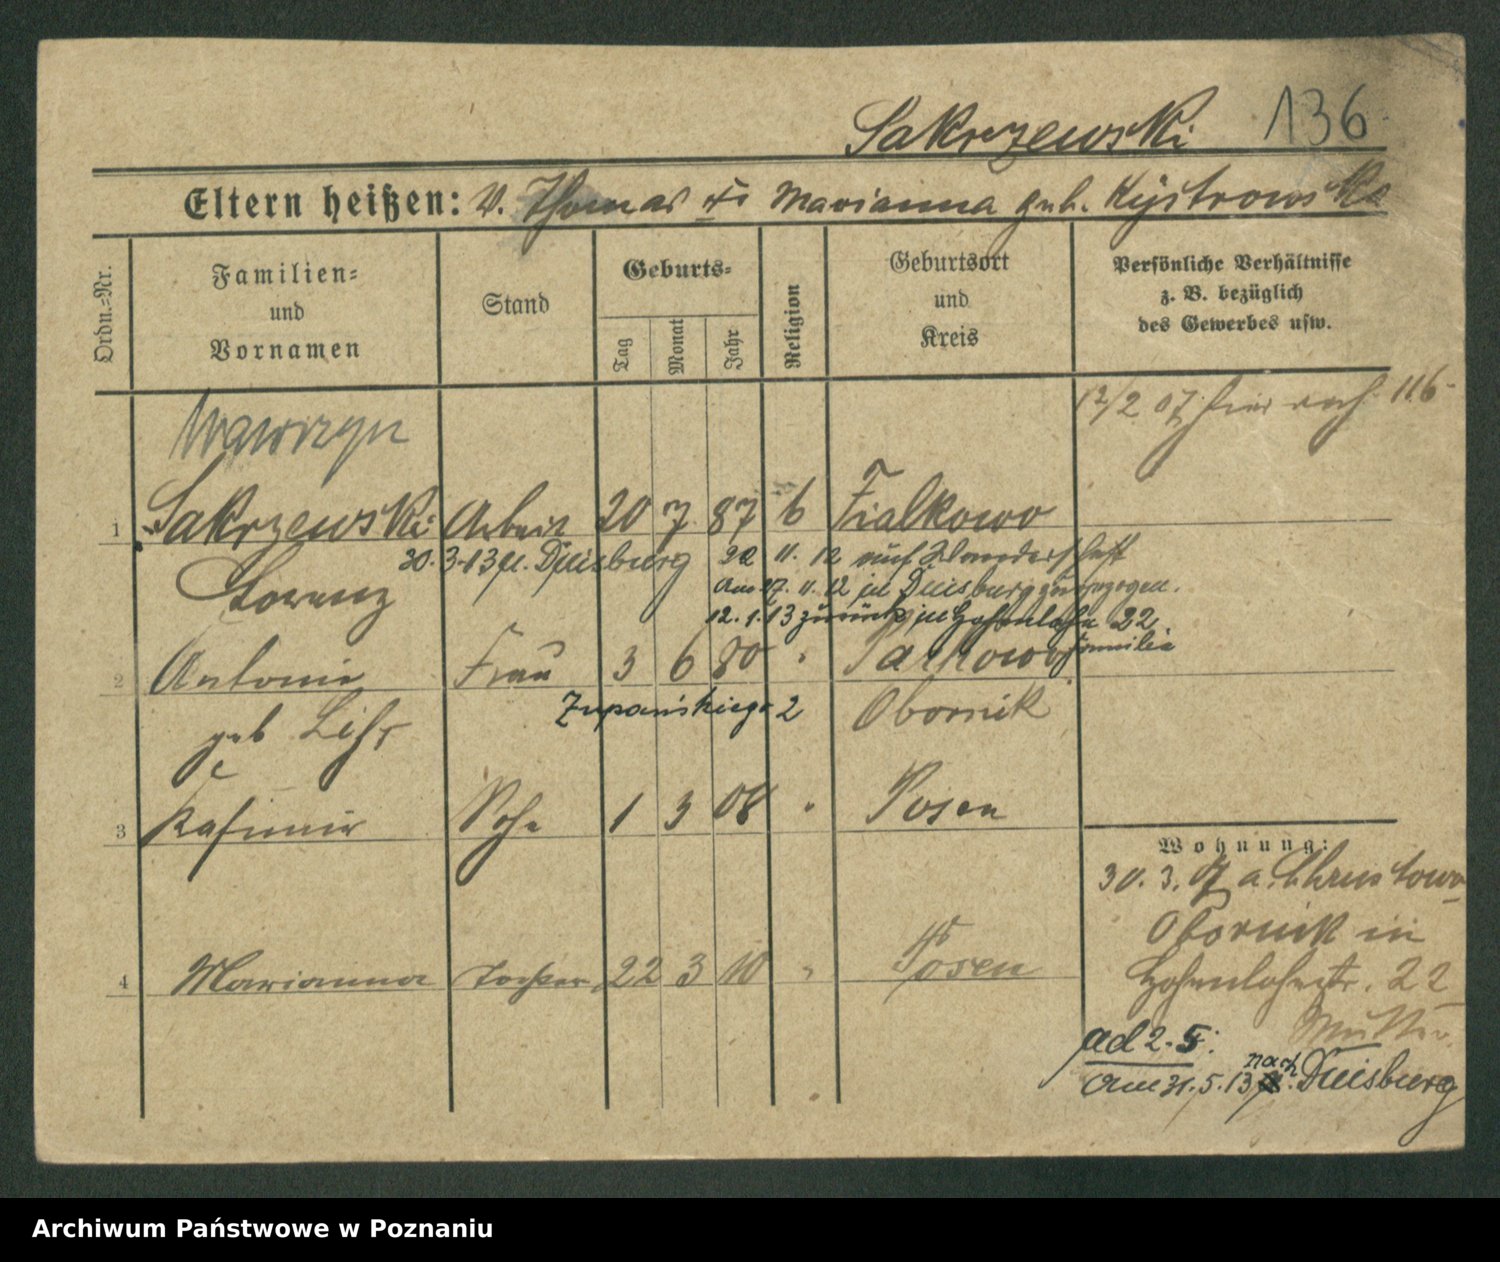 Sakrzewski 136
Eltern heißen: V. Thomas u Marianna geb. Kystrowska
Ordn.-Nr.
Familien- und Vornamen
Stand
Geburts-
Tag Monat Jahr
Religion
Geburtsort und Kreis
Persönliche Verhältnisse
z. B. bezüglich
des Gewerbes usw.
12/2 07 hier 116
Wawrzyn
1 Sakrzewski Arbeit 20 7 87 k Fialkowo
Lorenz
30.3.13 Duisburg
22 11. 12 auf Wanderschaft
Am 27. 11. 12 in Duisburg zugezogen.
12. 1. 13 zurück in Hohenlohe 22
Familie
2 Antonie Frau 3 6 80 " Parkowo
geb Obornik
Zupańskiego 2
3 Kasimir Sohn 1 3 08 " Posen
4 Marianna Tochter 22 3 10 " Posen
Wohnung:
30. 3. 07 a. Chrustowo
Obornik in
Hohenlohestr. 22
Mutter
ad 2-5:
Am 31.5.13 nach Duisburg
Archiwum Państwowe w Poznaniu